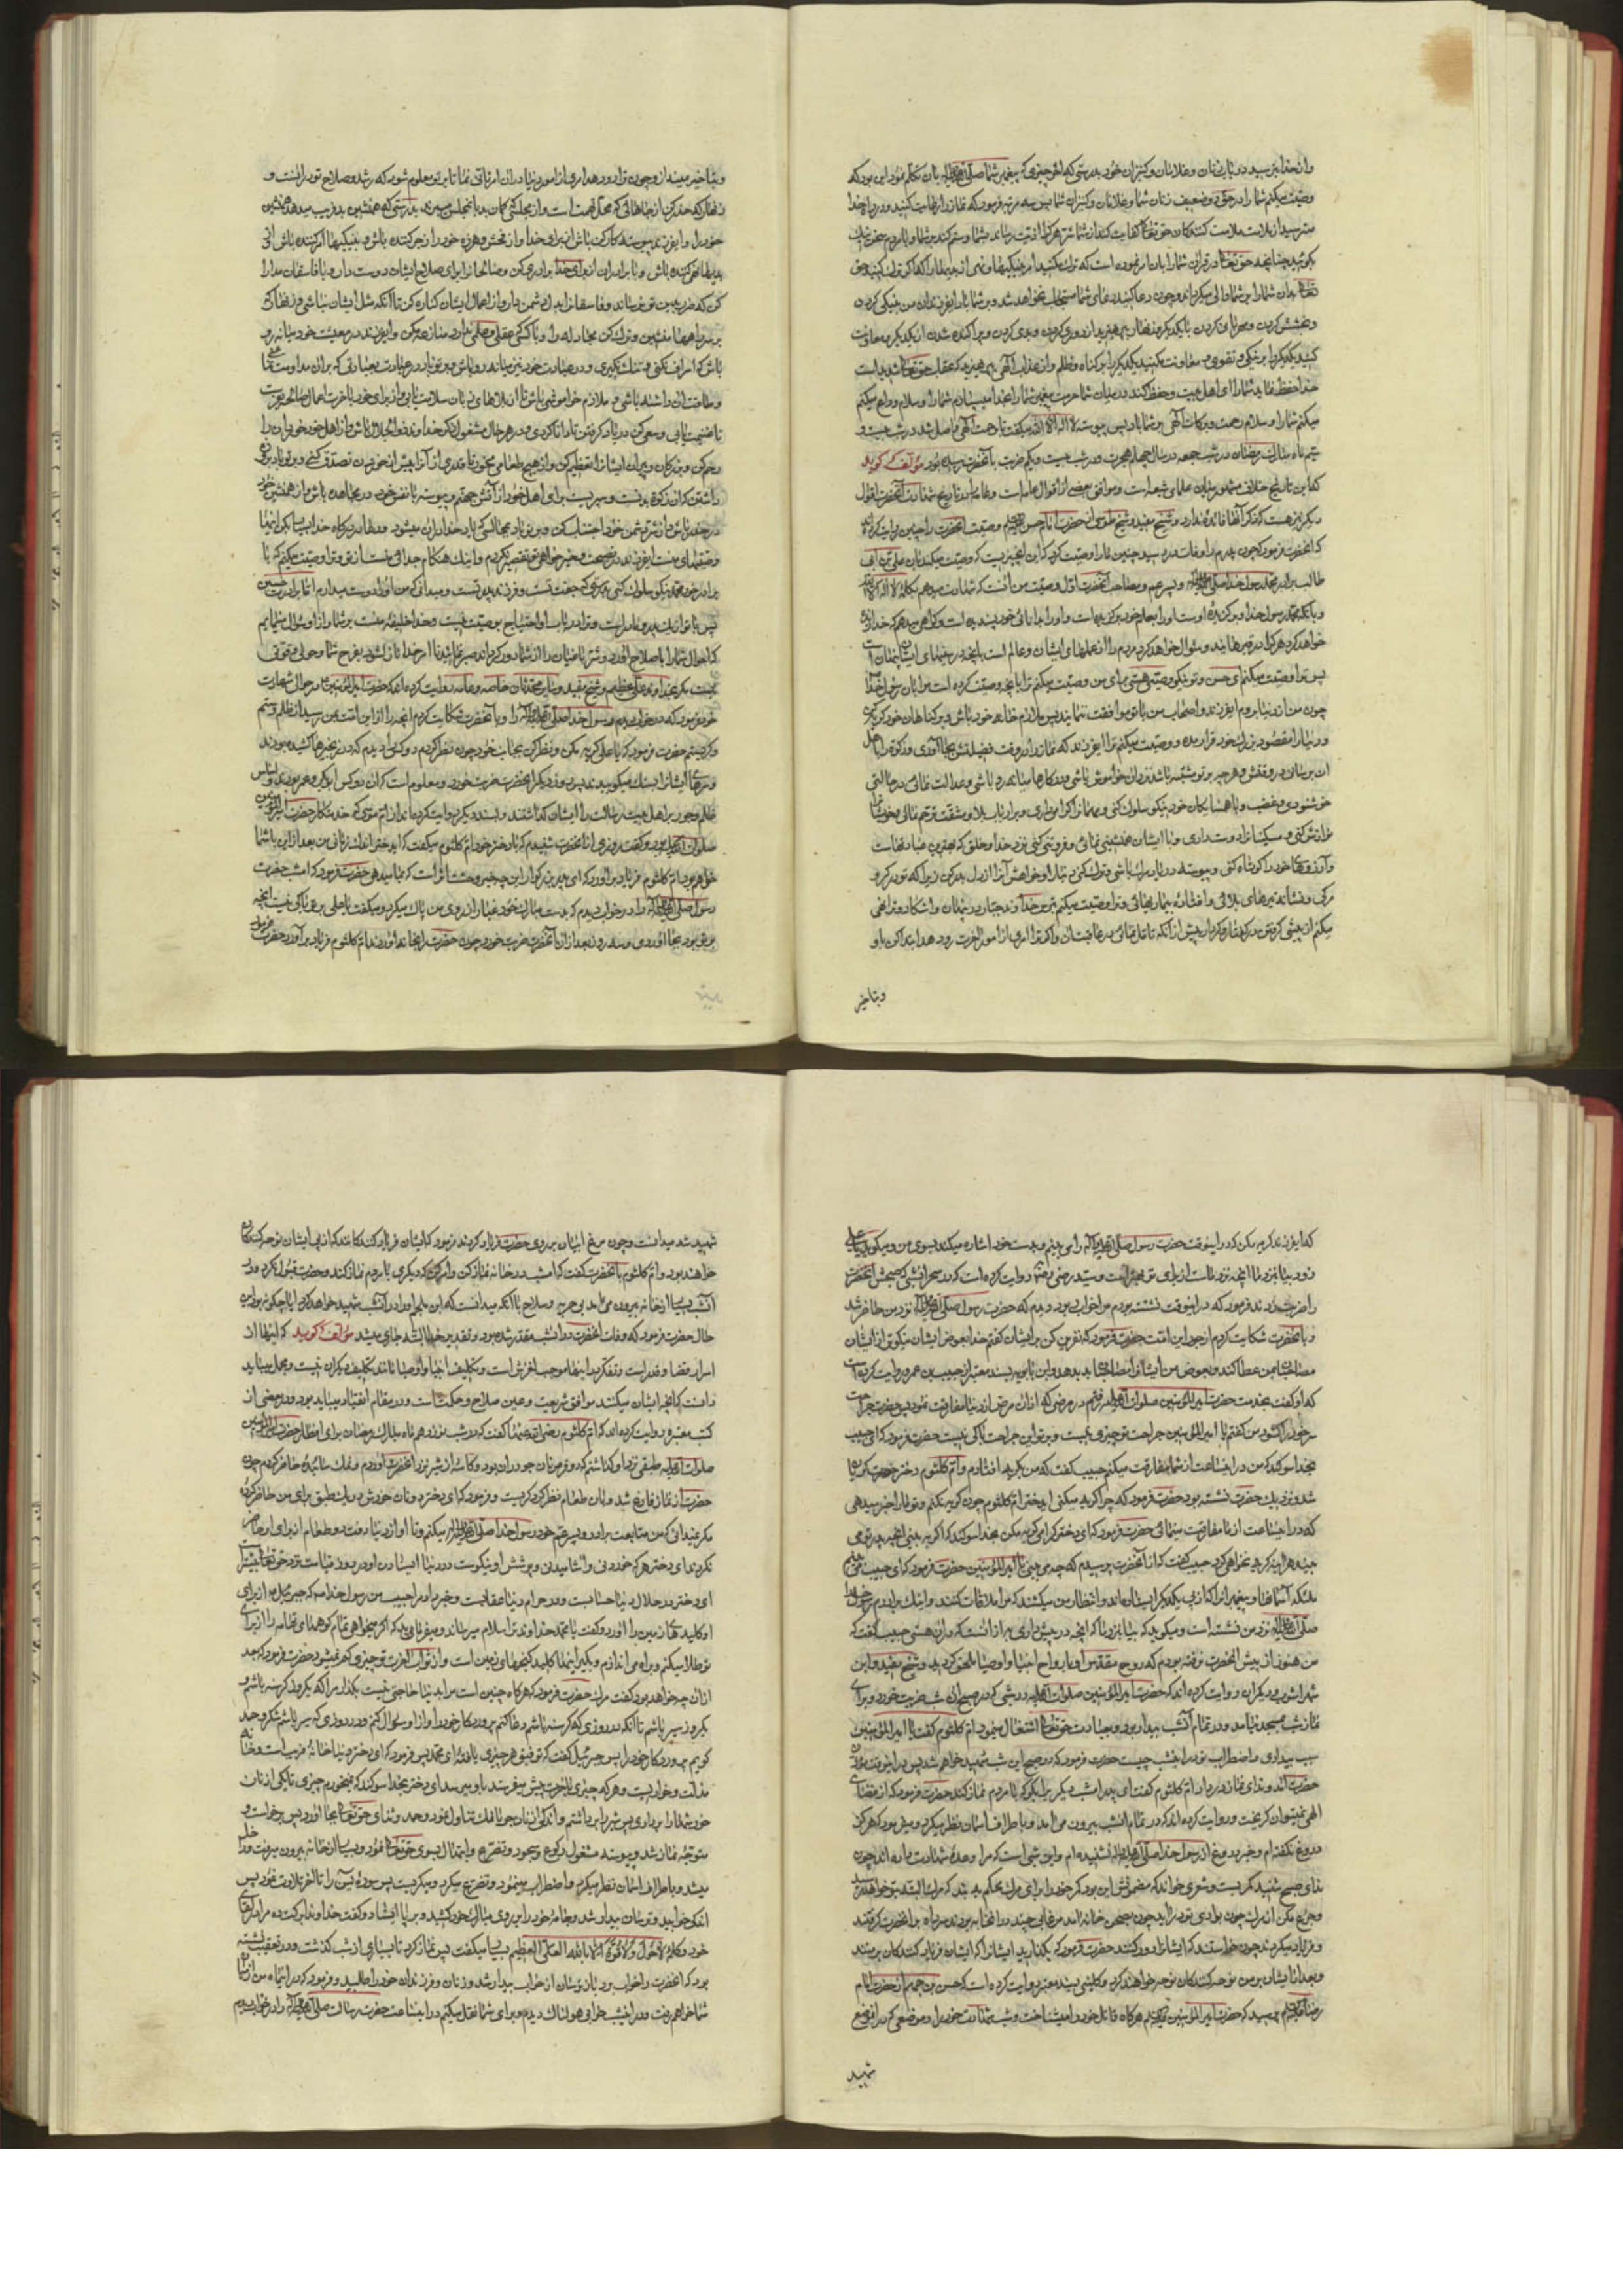 و از خدا بترسید در باب زنان و غلامان و کنیزان خود بدرستی که آخر چیزی که پیغمبر شما صلی الله علیه و آله بآن تکلم نمود این بود که
وصیت میکنم شما را در حق دو ضعیف زنان شما و غلامان و کنیزان شما پس سه مرتبه فرمود که نماز را رعایت کنید و در راه خدا
مترسید از ملامت ملامت کنندگان حق تعالی کفایت کند از شما شر هر که را اذیت رساند بشما و ستم کند بر شما و با مردم سخن نیک
بگوئید چنانچه حق تعالی در قرآن شما را بآن امر نموده است که ترک مکنید امر بنیکیها و نهی از بدیها را که اگر ترک کنید حق
تعالی بدان شما را بر شما والی میگرداند و چون دعا کنید دعای شما مستجاب نخواهد شد و بر شما باد ای فرزندان من بنیکی کردن
و بخشش کردن و مهربانی کردن با یکدیگر و زنهار بپرهیزید از دوری کردن و بدی کردن و پراکنده شدن از یکدیگر و معاونت
کنید یکدیگر را بر نیکی و تقوی و معاونت مکنید یکدیگر را بر گناه و ظلم و از عذاب الهی بپرهیزید که عقاب حق تعالی شدید است
خدا حفظ نماید شما را ای اهل بیت و حفظ کند در میان شما حرمت پیغمبر شما را بخدا میسپارم شما را و سلام وداع میکنم
میکنم شما را و سلام و رحمت و برکات الهی بر شما باد پس پیوسته لا اله الا الله میگفت تا رحمت الهی واصل شد در شب بیست و
یکم ماه مبارک رمضان در شب جمعه در سال چهلم هجرت و در شب بیست و یکم ضربت بآنحضرت رسیده بود مؤلف گوید
که این تاریخ خلاف مشهور میان علمای شیعه است و موافق بعضی از اقوال عامه است و عامه را در تاریخ شهادت آنحضرت اقوال
دیگر نیز هست که ذکر آنها فائده ندارد و شیخ مفید و شیخ طوسی از حضرت امام حسن علیه السلام وصیت آنحضرت را چنین روایت کرده اند
که آنحضرت فرمود که چون پدرم را وفات در رسید چنین ما را وصیت کرد که این آنچیزیست که وصیت میکند بآن علی بن ابی
طالب برادر محمد رسول خدا صلی الله علیه و آله و پسر عم و مصاحب آنحضرت اول وصیت من آنست که شهادت میدهم بکلمه لا اله الا الله
و باینکه محمد رسول خدا و برگزیده اوست او را بعلم خود برگزیده است و او را بدانائی خود پسندیده است و گواهی میدهم که خدا زنده
خواهد کرد هر که را در قبرهایند و سؤال خواهد کرد مردم را از عملهای ایشان و عالم است بآنچه در سینهای ایشان پنهان است
پس ترا وصیت میکنم ای حسن و تو نیکو وصیئی هستی برای من وصیت میکنم ترا بآنچه وصیت کرده است مرا بآن رسول خدا
چون من از دنیا بروم ای فرزند و اصحاب من با تو موافقت ننمایند پس ملازم خانه خود باش و بر گناهان خود گریه کن
و دنیا را مقصود بزرگ خود قرار مده و وصیت میکنم ترا ای فرزند که نماز را در وقت فضیلتش بجا آوری و زکوة را باهل
آن برسانی در وقتش و هر چه بر تو مشتبه باشد نزد آن خاموش باشی و در کارها میانه رو باشی و عدالت نمائی در حالت
خوشنودی و غضب و با همسایگان خود نیکو سلوک کنی و مهمانرا گرامی داری و بر ارباب بلا و مشقت ترحم نمائی و بخویشان
نوازش کنی و مسکینانرا دوست داری و با ایشان همنشینی نمائی و فروتنی کنی نزد خدا و خلق که بهترین عبادتهاست
و آرزوهای خود را کوتاه کنی و پیوسته در یاد مرگ باشی و ترک کنی دنیا را و خواهش آنرا از دل بدر کن زیرا که تو در گرو
مرگی و نشانه تیرهای بلائی و افتاده بیماریهائی و ترا وصیت میکنم بترس خداوند جبار در پنهان و آشکار و ترا نهی
میکنم از پیشی گرفتن در گفتار و کردار پیش از آنکه تامل نمائی در عاقبت آن و اگر ترا امری از امور آخرت رو دهد ابتدا کن باو
و بتاخیر
و بتاخیر مینداز و چون ترا رو دهد امری از امور دنیا در آن تأنی نما تا بر تو معلوم شود که رشد و صلاح تو در آنست و
زنهار که حذر کن از جاهائی که محل تهمت است و از مجلسی که گمان بد باهل آن مجلس میبرند بدرستی که همنشین بد فریب میدهد همنشین
خود را و ای فرزند پیوسته کار کن باش از برای خدا و از فحش و هرزه خود را زجر کننده باش و بنیکیها امر کننده باش و از
بدیها نهی کننده باش و با برادران از برای خدا برادری کن و صالحانرا برای صلاح ایشان دوست دار و با فاسقان مدارا
کن که ضرر بدین تو نرسانند و فاسقانرا بدل دشمن دار و از اعمال ایشان کناره کن تا آنکه مثل ایشان نباشی و زنهار که
بر سر راهها منشین و ترک کن مجادله را و با کسی که عقل و علمی ندارد منازعه مکن و ای فرزند در معیشت خود میانه رو
باش که اسراف نکنی و تنگ نگیری و در عبادت خود نیز میانه رو باش و بر تو باد در عبادت بعبادتی که بر آن مداومت نمائی
و طاقت آن داشته باشی و ملازم خاموشی باش تا از بلاهای زبان سلامت یابی و از برای خود بآخرت اعمال صالحه بفرست
تا غنیمت یابی و سعی کن در یاد گرفتن تا دانا گردی و در هر حال مشغول ذکر خداوند ذو الجلال باش و از اهل خود خوردان را
رحم کن و بزرگان و پیران ایشانرا تعظیم کن و از هیچ طعامی مخور تا قدری از آنرا پیش از خوردن تصدق کنی و بر تو باد بروزه
داشتن که آن زکوة بدنست و سپریست برای اهل خود از آتش جهنم و پیوسته با نفس خود در مجاهده باش و از همنشین خود
در حذر باش و از شر دشمن خود اجتناب کن و بر تو باد بمجالسی که یاد خدا در آن میشود و دعا در درگاه خدا بسیار کن اینها
وصیتهای منست ای فرزند در نصیحت و خیرخواهی تو تقصیر نکردم و اینک هنگام جدائی منست از تو و ترا وصیت میکنم که با
برادر خود محمد نیکو سلوک کنی که جفت تست و فرزند پدر تست و میدانی که من او را دوست میدارم اما برادرت حسین
پس با تو از یک پدر و مادر است و ترا در باب او احتیاج بوصیت نیست و خدا خلیفه منست بر شما و از او سؤال مینمایم
که احوال شما را باصلاح آورد و شر یاغیان را از شما دور گرداند صبر نمایید تا امر خدا نازل شود بفرج شما و حول و قوتی
نیست مگر بخداوند علی عظیم و شیخ مفید و سایر محدثان خاصه و عامه روایت کرده اند که حضرت امیر المؤمنین در حوالی شهادت
خود فرمود که در خواب دیدم رسول خدا صلی الله علیه و آله را و بآنحضرت شکایت کردم آنچه را از این امت بمن رسید از ظلم و ستم
و گریستم حضرت فرمود که یا علی گریه مکن و نظر کن بجانب خود چون نظر کردم دو کس را دیدم که در زنجیرها کشیده بودند
و سرهای ایشانرا بسنگ میکوبیدند پس روز دیگر آنحضرت ضربت خورد و معلوم است که آن دو کس ابوبکر و عمر بودند که اساس
ظلم و جور بر اهل بیت رسالت را ایشان گذاشتند و بسند دیگر روایت کرده اند از ام موسی که خدمتکار حضرت امیر المؤمنین
صلوات الله علیه بود گفت روزی از آنحضرت شنیدم که با دختر خود ام کلثوم میگفت که ای دختر اندک زمانی من بعد از این با شما
خواهم بود ام کلثوم فریاد برآورد که ای پدر بزرگوار این چه خبر وحشت اثر است که بما میدهی حضرت فرمود که امشب حضرت
رسول صلی الله علیه و آله را در خواب دیدم که بدست مبارک خود غبار از روی من پاک میکرد و میگفت یا علی بر تو باکی نیست آنچه
بر تو بود بجا آوردی و سه روز بعد از آن آنحضرت ضربت خورد چون حضرت را بخانه آوردند ام کلثوم فریاد برآورد حضرت فرمود
که ای فرزند گریه مکن که در اینوقت حضرت رسول صلی الله علیه و آله را می بینم و بدست خود اشاره میکند بسوی من و میگوید یا علی
زود بیا بنزد ما که آنچه نزد ماست از برای تو بهتر است و سید رضی رضی الله عنه روایت کرده است که در سحر آنشبی که صبحش آنحضرت
را ضربت زدند فرمود که در اینوقت نشسته بودم مرا خواب ربود دیدم که حضرت رسول صلی الله علیه و آله نزد من حاضر شد
و بآنحضرت شکایت کردم از جور این امت حضرت فرمود که نفرین کن بر ایشان گفتم خدا بعوض ایشان نیکوتر از ایشان
مصاحبان بمن عطا کند و بعوض من ایشانرا مصاحب بد بدهد و ابن بابویه بسند معتبر از حبیب بن عمرو روایت کرده است
که او گفت بخدمت حضرت امیر المؤمنین صلوات الله علیه رفتم در مرضی که از آن مرض از دنیا مفارقت نمود پس حضرت جراحت
سر خود را گشود من گفتم یا امیر المؤمنین جراحت تو چیزی نیست و بر تو از این جراحت باکی نیست حضرت فرمود که ای حبیب
بخدا سوگند که من در این ساعت از شما مفارقت میکنم حبیب گفت که من بگریه افتادم و ام کلثوم دختر حضرت گریان
شد و نزدیک حضرت نشسته بود حضرت فرمود که چرا گریه میکنی ای دختر ام کلثوم چون گریه نکنم و تو ما را خبر میدهی
که در این ساعت از ما مفارقت مینمائی حضرت فرمود که ای دختر گرامی گریه مکن بخدا سوگند که اگر ببینی آنچه پدر تو می
بیند هر آینه گریه نخواهی کرد حبیب گفت که از آنحضرت پرسیدم که چه می بینی یا امیر المؤمنین حضرت فرمود که ای حبیب می بینم
ملائکه آسمانها و پیغمبران که از پی یکدیگر ایستاده اند و انتظار من میکشند که مرا ملاقات کنند و اینک برادرم رسول خدا
صلی الله علیه و آله نزد من نشسته است و میگوید که بیا بنزد ما که آنچه در پیش داری بهتر از آنست که در آن هستی حبیب گفت که
من هنوز از پیش آنحضرت نرفته بودم که روح مقدس او بارواح انبیا و اوصیا ملحق گردید و شیخ مفید و ابن
شهرآشوب و دیگران روایت کرده اند که حضرت امیر المؤمنین صلوات الله علیه در شبی که در صبح آن شب ضربت خورد و برای
نماز شب بمسجد نیامد و در تمام آنشب بیدار بود و بعبادت حق تعالی اشتغال مینمود ام کلثوم گفت یا امیر المؤمنین
سبب بیداری و اضطراب تو در این شب چیست حضرت فرمود که در صبح این شب شهید خواهم شد پس در اینوقت مؤذن
حضرت آمد و ندای نماز در داد ام کلثوم گفت ای پدر امشب دیگری را بگو که با مردم نماز کند حضرت فرمود که از قضای
الهی نمیتوان گریخت و روایت کرده اند که در تمام آنشب بیرون می آمد و باطراف آسمان نظر میکرد و میفرمود که هرگز
دروغ نگفته ام و خبر دروغ از رسول خدا صلی الله علیه و آله نشنیده ام و این شبی است که مرا وعده شهادت داده اند چون
ندای صبح شنید گریست و شعری خواند که مضمونش این بود که خود را برای مرگ محکم ببند که مرگ البته بتو خواهد رسید
و جزع مکن از مرگ چون بوادی تو درآید چون بصحن خانه آمد مرغابی چند در آن خانه بودند سر راه بر آنحضرت گرفتند
و فریاد میکردند چون خواستند که ایشانرا دور کنند حضرت فرمود که بگذارید ایشانرا که ایشان فریاد کنندگان بر منند
و بعد از ایشان بر من نوحه کنندگان نوحه خواهند کرد و کلینی بسند معتبر روایت کرده است که حسن بن جهم از حضرت امام
رضا علیه السلام پرسید که حضرت امیر المؤمنین علیه السلام هرگاه قاتل خود را میشناخت و شب شهادت خود را و موضعی که در آنموضع
شهید
شهید شد میدانست و چون مرغ ابیان بر روی حضرت فریاد کردند فرمود که ایشان فریاد کنندگانند که از پی ایشان نوحه کنندگان
خواهند بود و ام کلثوم بآنحضرت گفت که امشب در خانه نماز کن و امر کن که دیگری با مردم نماز کند و حضرت قبول نکرد و در
آنشب بسیار از خانه بیرون می آمد بی حربه و سلاح با آنکه میدانست که ابن ملجم او را در آنشب شهید خواهد کرد آیا چگونه بود این
حال حضرت فرمود که وفات آنحضرت در آنشب مقدر شده بود و تقدیر حق تعالی البته جاری میشد مؤلف گوید که اینها از
اسرار قضا و قدر است و تفکر در اینها موجب لغزش است و تکلیف انبیا و اوصیا مانند تکلیف دیگران نیست و مجمل میباید
دانست که آنچه ایشان میکنند موافق شریعت و عین صلاح و حکمت است و در مقام انقیاد میباید بود و در بعضی از
کتب معتبره روایت کرده اند که ام کلثوم رضی الله عنها گفت که در شب نوزدهم ماه مبارک رمضان برای افطار حضرت امیر المؤمنین
صلوات الله علیه طبقی نزد او گذاشتم که دو قرص نان جو در آن بود و کاسه از شیر نزد آنحضرت آوردم و نمک سائیده حاضر کردم چون
حضرت از نماز فارغ شد و بآن طعام نظر کرد گریست و فرمود که ای دختر دو نان خورش در یک طبق برای من حاضر کرده
مگر نمیدانی که من متابعت برادر و پسر عم خود رسول خدا صلی الله علیه و آله میکنم و تا او از دنیا رفت دو طعام از برای او حاضر
نکردند ای دختر هر که خوردنی و آشامیدنی و پوشش او نیکوست در دنیا ایستادن او در روز قیامت نزد حق تعالی بیشتر است
ای دختر در حلال دنیا حسابست و در حرام دنیا عقابست و خبر داد مرا حبیب من رسول خدا که جبرئیل از برای
او کلیدهای زمین را آورد و گفت یا محمد خداوند ترا سلام میرساند و میفرماید که اگر میخواهی تمام کوههای تهامه را از برای
تو طلا میکنم و براه می اندازم و بگیر اینها را کلید گنجهای زمین است و از ثواب آخرت تو چیزی کم نمیشود حضرت فرمود که بعد
از آن چه خواهد بود گفت مرگ حضرت فرمود که هرگاه چنین است مرا بدنیا حاجتی نیست بگذار مرا که یکروز گرسنه باشم و
یکروز سیر باشم تا آنکه در روزی که گرسنه باشم دعا کنم پروردگار خود را و از او سؤال کنم و در روزی که سیر باشم شکر و حمد
گویم پروردگار خود را پس جبرئیل گفت که توفیق هر چیزی یافته ای محمد پس فرمود که ای دختر دنیا خانه فریب است و خانه
مذلت و خواریست و هر که چیزی بآخرت پیش میفرستد باو میرسد ای دختر بخدا سوگند که نمیخورم چیزی تا یکی از نان
خورشها را برداری پس شیر را برداشتم و اندکی از نان جو با نمک تناول نمود و حمد و ثنای حق تعالی بجا آورد پس برخاست و
متوجه نماز شد و پیوسته مشغول رکوع و سجود و تضرع و ابتهال بسوی حق تعالی نمود و بسیار از خانه بیرون میرفت و داخل
میشد و باطراف آسمان نظر میکرد و اضطراب مینمود و تضرع میکرد و میگریست پس سوره یس را تا آخر تلاوت نمود پس
اندکی خوابید و ترسان بیدار شد و جامه خود را بر روی مبارک خود کشید و بر پا ایستاد و گفت خداوندا برکت ده مرا در لقای
خود و کلمه لا حول و لا قوة الا بالله العلی العظیم بسیار میگفت پس نماز کرد تا بسیاری از شب گذشت و در تعقیب نشسته
بود که آنحضرت را خواب ربود باز ترسان از خواب بیدار شد و زنان و فرزندان خود را طلبید و فرمود که در اینماه من از میان
شما خواهم رفت و در این شب خوابی هولناک دیدم و برای شما نقل میکنم در این ساعت حضرت رسالت صلی الله علیه و آله را در خواب دیدم